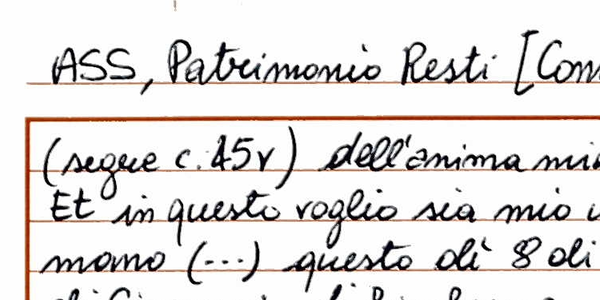 ASS, Patrimonio Resti [Com
(segue c. 45v) dell'anima mia
Et in questo voglio sia mio
momo (...) questo dì 8 di